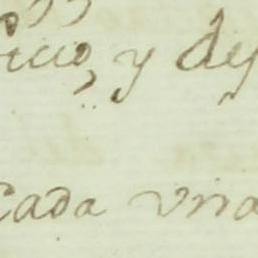 ficio, y de
Cada vna